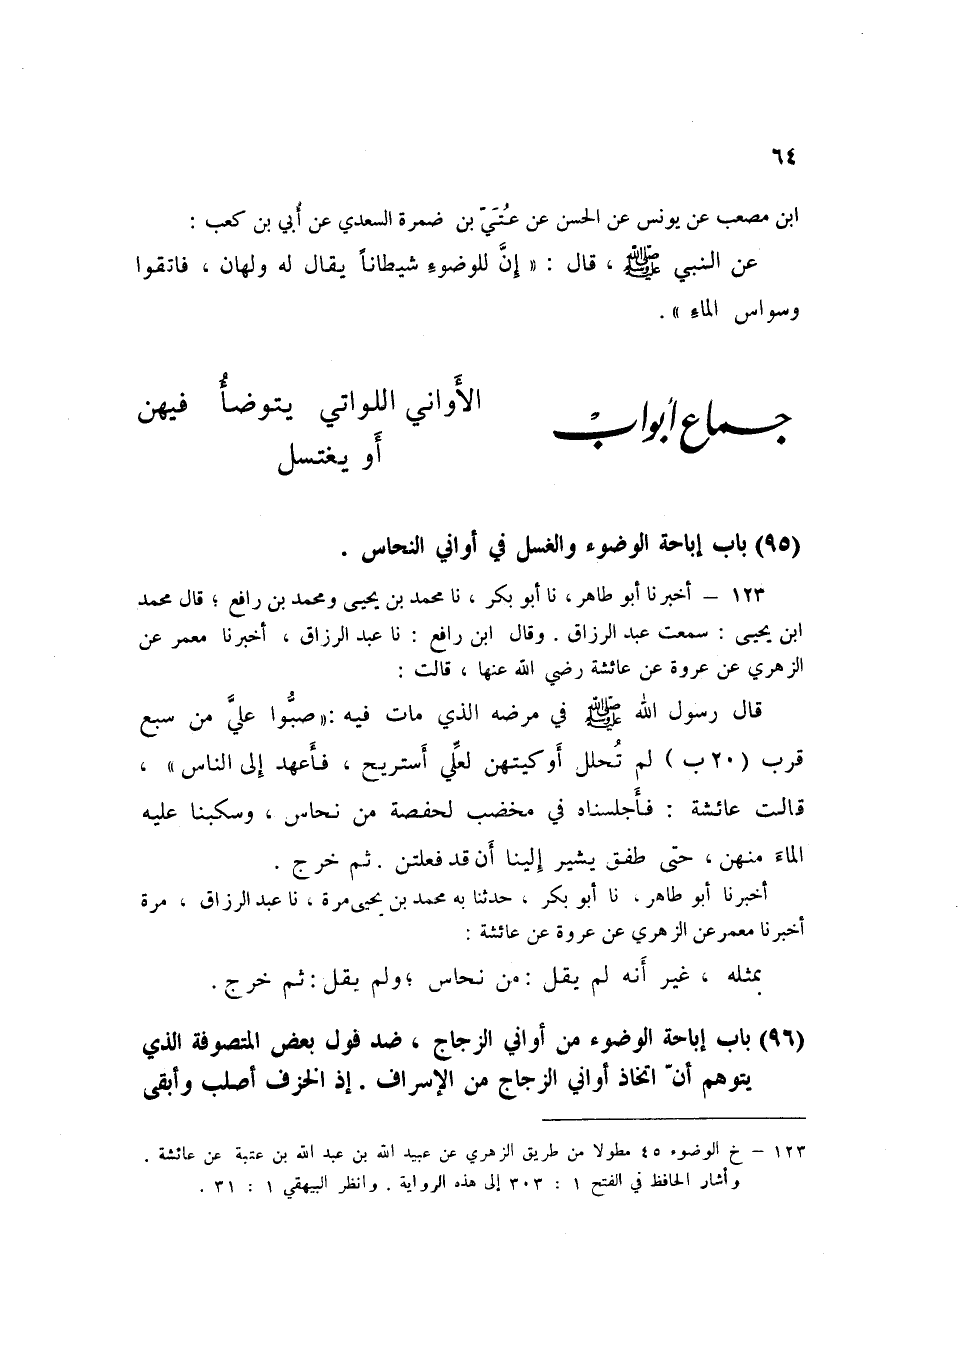 ٦٤
ابن مصعب عن يونس عن الحسن عن عتُيَّ بن ضمرة السعدي عن أُبي بن كعب :
عن النبي ﷺ ، قال : « إنَّ للوضوءِ شيطاناً يقال له ولهان ، فاتقوا
وسواس الماءِ » .
جماع أبواب الأَواني اللواتي يتوضأُ فيهن
أَو يغتسل
(٩٥) باب إباحة الوضوء والغسل في أواني النحاس .
١٢٣ – أخبرنا أبو طاهر ، نا أبو بكر ، نا محمد بن يحيى ومحمد بن رافع ؛ قال محمد
ابن يحيى : سمعت عبد الرزاق . وقال ابن رافع : نا عبد الرزاق ، أخبرنا معمر عن
الزهري عن عروة عن عائشة رضي الله عنها ، قالت :
قال رسول الله ﷺ في مرضه الذي مات فيه :«صبُّوا عليَّ من سبع
قرب (٢٠ب) لم تُحلل أَوكيتهن لعلِّي أَستريح ، فأَعهد إلى الناس» ،
قالت عائشة : فأَجلسناه في مخضب لحفصة من نحاس ، وسكبنا عليه
الماءَ منهن ، حتى طفق يشير إلينا أَن قد فعلتن . ثم خرج .
أخبرنا أبو طاهر ، نا أبو بكر ، حدثنا به محمد بن يحيى مرة ، نا عبد الرزاق ، مرة
أخبرنا معمر عن الزهري عن عروة عن عائشة :
بمثله ، غير أَنه لم يقل : من نحاس ؛ ولم يقل : ثم خرج .
(٩٦) باب إباحة الوضوء من أواني الزجاج ، ضد قول بعض المتصوفة الذي
يتوهم أنّ اتخاذ أواني الزجاج من الإسراف . إذ الخزف أصلب وأبقى
١٢٣ – خ الوضوء ٤٥ مطولا من طريق الزهري عن عبيد الله بن عبد الله بن عتبة عن عائشة .
وأشار الحافظ في الفتح ١ : ٣٠٣ إلى هذه الرواية . وانظر البيهقي ١ : ٣١ .